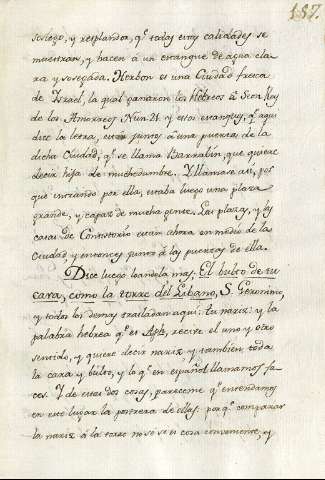 157.
sosiego, y resplandor, q.e todas estas calidades se
muestran, y hacen á un estanque de agua cla-
ra y sosegada. Hesbon es una Ciudad fresca
de Israel, la qual ganaron los Hebreos á Seon Rey
de los Amorreos Num. 21 y estos estanques, q.e aqui
dice la letra, están juntos á una puerta de la
dicha Ciudad, q.e se llama Barrabin, que quiere
decir hija de muchedumbre. Y llamase asi, por
que entrando por ella, estaba luego una plaza
grande, y capaz de mucha gente. Las plazas, y las
casas de Consistorio están ahora en medio de la
Ciudad y entonces junto á las puertas de ella.
Dice luego loandola mas, El bulto de tu
cara, como la torre del Libano, S. Geronimo,
y todos los demas trasladan aqui: tu nariz: y la
palabra hebrea q.e es Aph, recive el uno y otro
sentido, y quiere decir nariz y tambien toda
la cara y bulto, y lo q.e en español llamamos fa-
ces. Y de estas dos cosas, pareceme q.e entendamos
en este lugar la postrera de ellas. porq.e comparar
la nariz á la torre no sé si es cosa conveniente, y